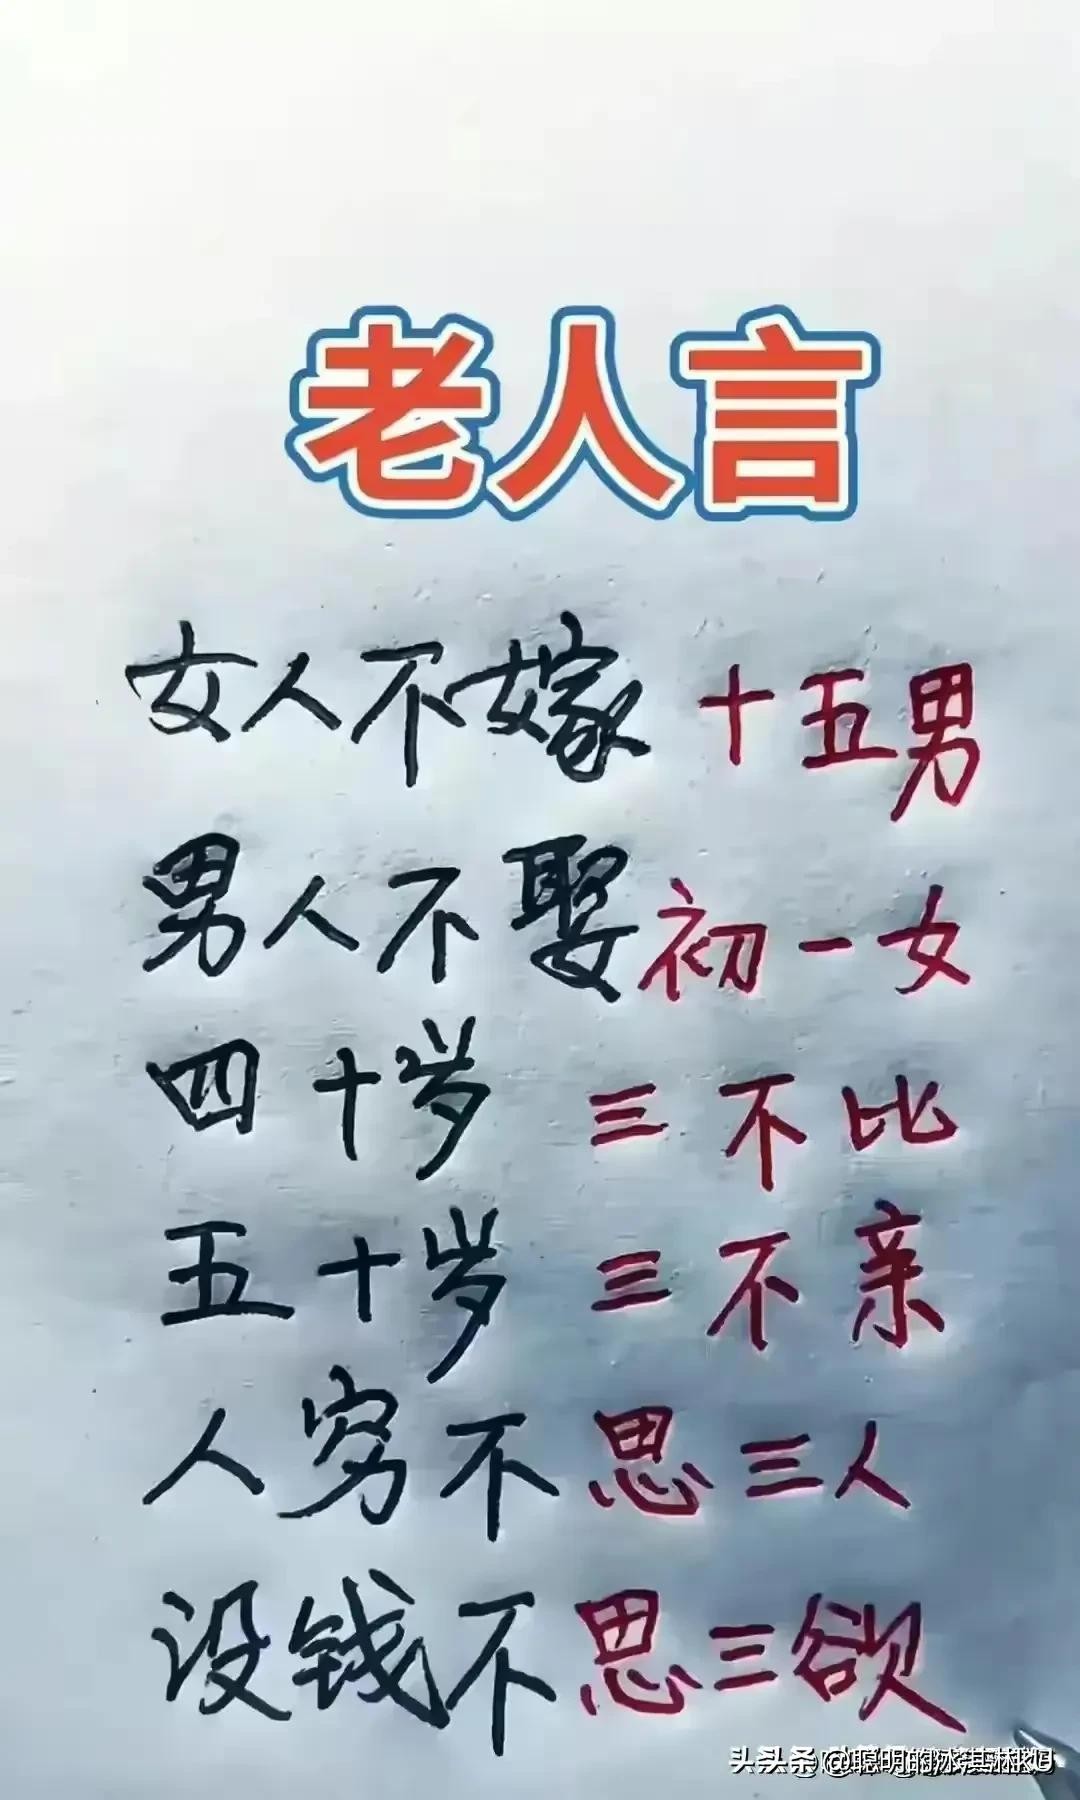 老人言
女人不嫁十五男
男人不娶初一女
四十岁 三不比
五十岁 三不亲
人穷不思三人
没钱不思三欲
头条 @聪明的冰淇淋